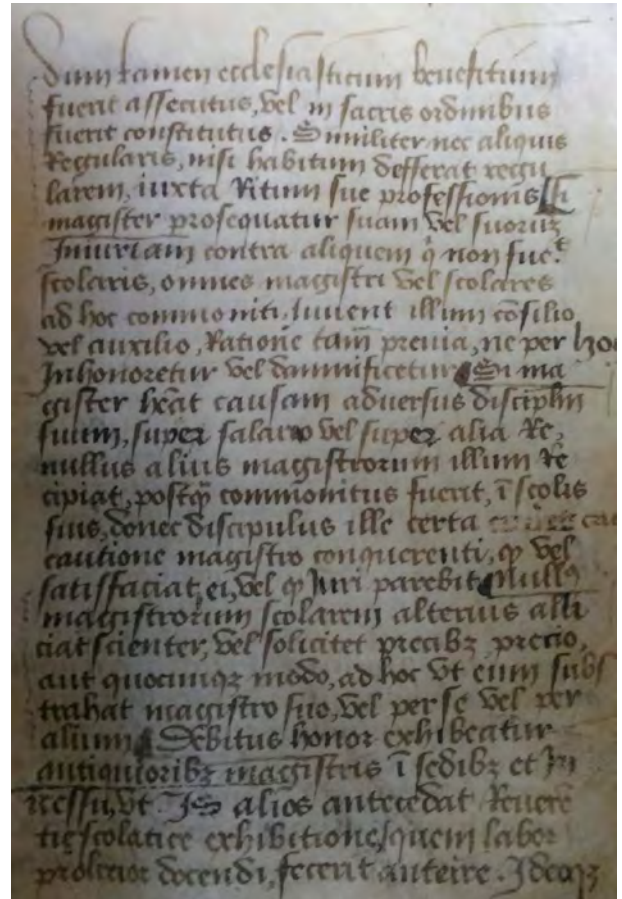 dum tamen ecclesiasticum benefitium
fuerit assecutus, vel in sacris ordinibus
fuerit constitutus. Similiter nec aliquis
Regularis, nisi habitum defferat regu
larem, iuxta Ritum sue professionis Si
magister prosequatur suam vel suoruʒ
Iniuriam contra aliquem q̇ non fue.t
scolaris, omnes magistri vel scolares
ad hoc commoniti, Iuvent illum cōsilio
vel auxilio, Ratione tam̄ previa, ne per hoc
Inhonoretur vel damnificetur Si ma
gister heāt causam adversus disciplin
suum, super salario vel super alia Re,
nullus alius magistrorum illum re
cipiat, postq̄ commonitus fuerit, ī scolis
suis, donec discipulus ille certa
cautione magistro conquerenti, ꝙ vel
satisfaciat, ei, vel ꝙ Iuri parebit Nullꝰ
magistrorum scolarem alterius alli
ciat scienter, vel solicitet precibʒ precio,
aut quocumqʒ modo, ad hoc vt eum subs
trahat magistro suo, vel per se vel per
alium Debitus honor exhibeatur
antiquioribʒ magistris ī sedibʒ et In
cessu, vt Is alios antecedat Revere
tię scolatice exhibitione, quem labor
prolixior docendi, fecerit anteire. Ideoqʒ